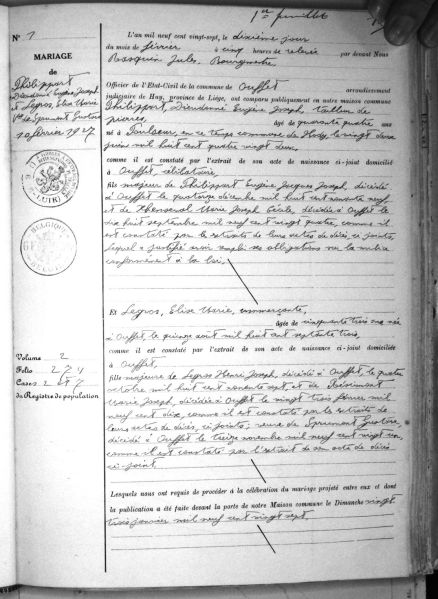 1er feuillet
N° 1
MARIAGE
de
Philippart
Dieudonné Eugène Joseph
et Legros, Elise Marie
Vve de Spruemont Gustave
10 février 1927
L'an mil neuf cent vingt-sept, le dixième jour
du mois de février à cinq heures de relevée par devant Nous
Jules, Bourgmestre
Officier de l'Etat-Civil de la commune de Ouffet arrondissement
judiciaire de Huy, province de Liége, ont comparu publiquement en notre maison commune
Philippart, Dieudonné Eugène Joseph, tailleur de
pierres, âgé de quarante quatre ans
né à en ce temps commune de le vingt deux
juin mil huit cent quatre vingt deux
comme il est constaté par l'extrait de son acte de naissance ci-joint domicilié
à Ouffet, célibataire,
fils majeur de Philippart Eugène Jacques Joseph, décédé
à Ouffet le quatorze décembre mil huit cent nonante neuf
et de Marie Joseph Cécile, décédée à Ouffet le
dix huit septembre mil neuf cent vingt quatre, comme il
est constaté par les extraits de leurs actes de décès, ci-joints,
lequel a justifié avoir rempli ses obligations sur la milice
conformément à la loi,
Et Legros, Elise Marie, commerçante,
âgée de cinquante trois ans née
à Ouffet, le quinze août mil huit cent septante trois,
comme il est constaté par l'extrait de son acte de naissance ci-joint domiciliée
à Ouffet,
fille majeure de Legros Henri Joseph, décédé à Ouffet, le quatre
octobre mil huit cent nonante sept et de
Marie Joseph, décédée à Ouffet le vingt trois février mil
neuf cent dix, comme il est constaté par les extraits de
leurs actes de décès, ci-joints; veuve de Spruemont Gustave,
décédé à Ouffet le treize novembre mil neuf cent vingt un,
comme il est constaté par l'extrait de son acte de décès
ci-joint.
Volume 2
Folio 224
Cases 2
du Registre de population
Lesquels nous ont requis de procéder à la célébration du mariage projeté entre eux et dont
la publication a été faite devant la porte de notre Maison commune le Dimanche vingt
trois janvier mil neuf cent vingt sept